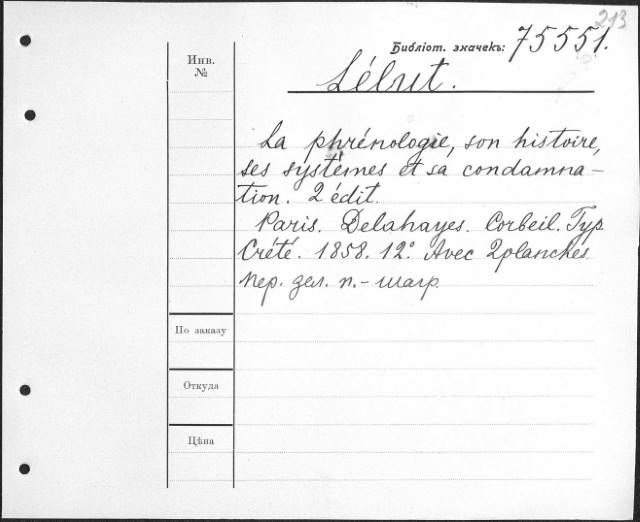 213
Библіот. значекъ: 75551.
Инв.
№
Lélut.
La phrénologie, son histoire,
ses systèmes et sa condamna-
tion. 2 édit.
Paris. Delahayes. Corbeil. Typ.
Crété. 1858. 12° Avec 2 planches
Пер. дел. п.-шагр.
По заказу
Откуда
Цѣна